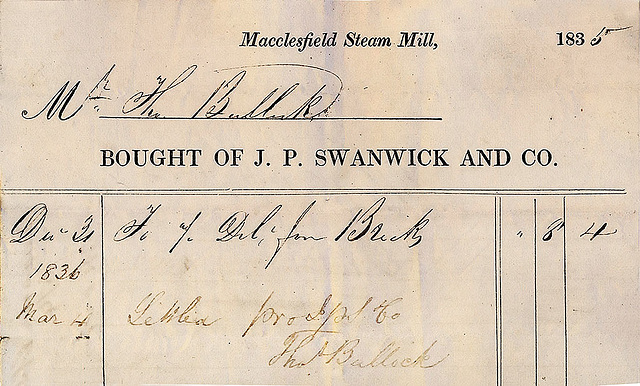 Macclesfield Steam Mill, 1835
Mr. Thos Bullock
BOUGHT OF J. P. SWANWICK AND CO.
Dec 31 To Bricks " 8 4
1836
Mar 4 Settled
Thos Bullock